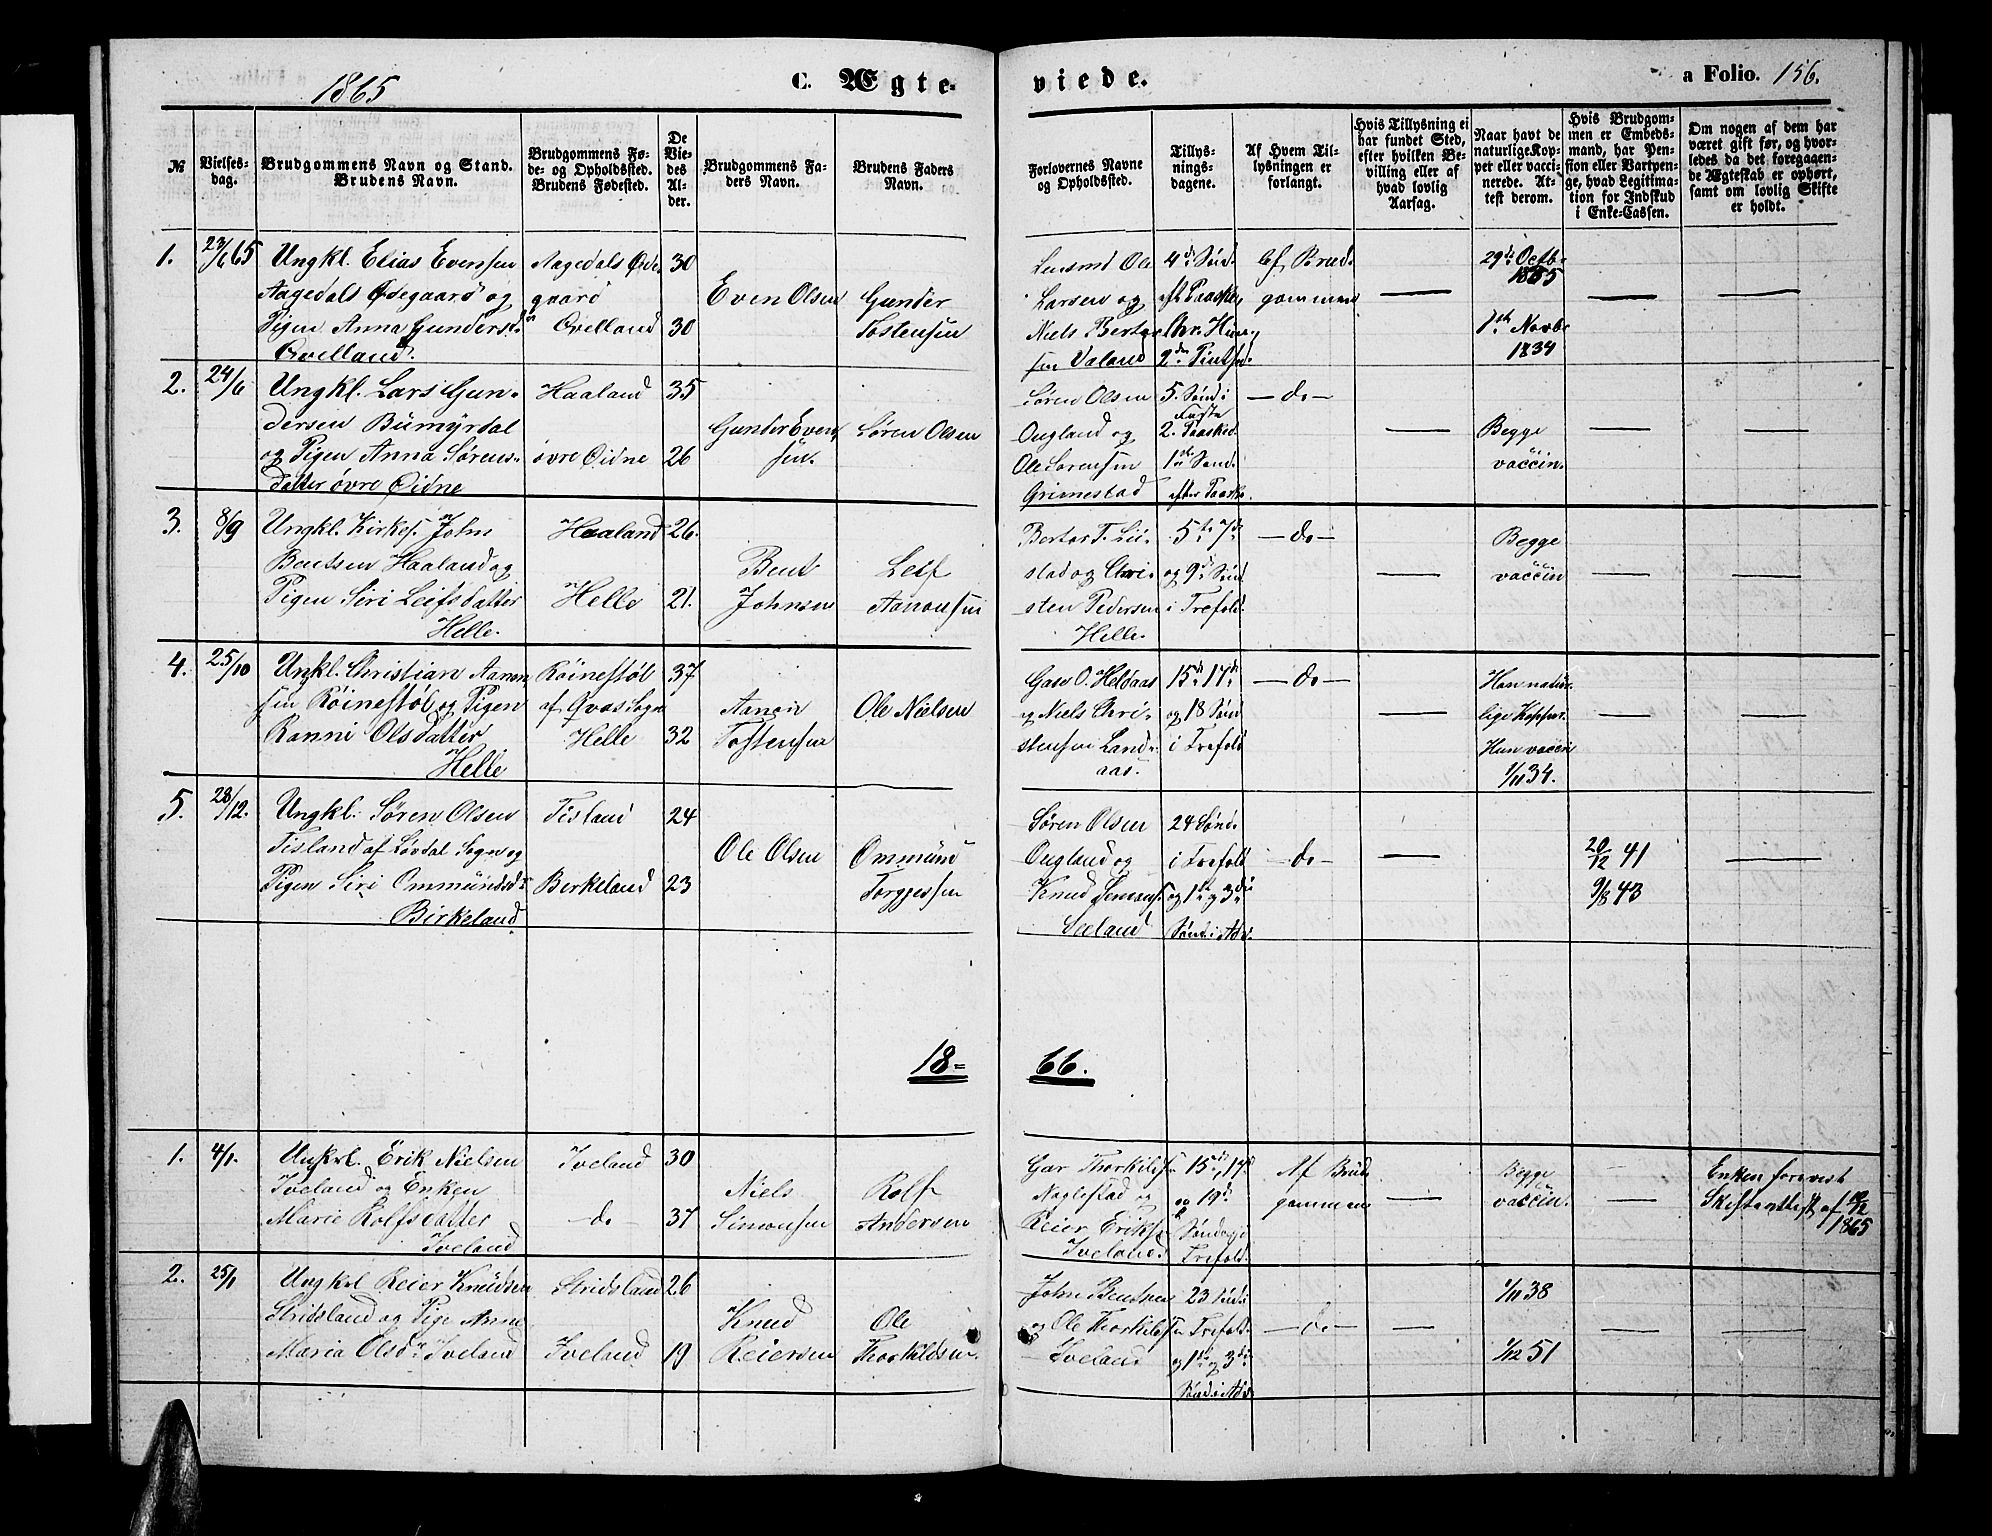 1865
C. Ægte-
viede.
a Folio. 156.
№
Vielses-
dag.
Brudgommens Navn og Stand.
Brudens Navn.
Brudgommens Fø-
de- og Opholdssted.
Brudens Fødested.
De
Vie-
des
Al-
der.
Brudgommens Fa-
ders Navn.
Brudens Faders
Navn.
Forlovernes Navne
og Opholdssted.
Tillys-
nings-
dagene.
Af Hvem Til-
lysningen er
forlangt.
Hvis Tillysning ei
har fundet Sted,
efter hvilken Be-
villing eller af
hvad lovlig
Aarsag.
Naar havt de
naturlige Kop-
per eller vacci-
nerede. At-
test derom.
Hvis Brudgom-
men er Embeds-
mand, har Pen-
sion eller Vartpen-
ge, hvad Legitima-
tion for Indskud
i Enke-Cassen.
Om nogen af dem har
været gift før, og hvor-
ledes da det foregaaen-
de Ægteskab er ophørt,
samt om lovlig Skifte
er holdt.
1.
23/6 65
Ungkl. Elias Evensen
Aagedals Ødegaard og
Pigen Anna Gundersd.
Qvelland.
Aagedals Øde
gaard
Qvelland
30
30
Even Olsen
Gunder
Tostensen
Lensmd Ole
Larsen og
Niels Berto
sen Valand
4de Sønd.
eft Paaske,
Chr. Him
2den Pintsed.
af Brud
gommen
29de Octb.
1835
7de Novbr
1834
2.
24/6
Ungkl. Lars Gun-
dersen Bumyrdal
og Pigen Anna Sørens-
datter øvre Øidne
Haaland
øvre Øidne
35
26
Gunder Even
sen.
Søren Olsen
Søren Olsen
Ougland og
Ole Sørensen
Grimestad
5. Sønd i
Faste
2. Paasked
1ste Sønd.
efter Paaske.
— do —
Begge
vaccin.
3.
8/9
Ungkl. Kirkes. John
Bentsen Haaland og
Pigen Siri Leifsdatter
Helle.
Haaland
Helle
26.
21.
Bent
Johnsen
Leif
Aanonsen
stad og Chri-
sten Pedersen
Helle.
5te 7de
og 9de Sønd
i Trefold.
— do —
Begge
vaccin
4.
25/10
Unkl. Christian Aanon
sen Röinestöl og Pigen
Ranni Olsdatter
Helle
Röinestöl
af Qvas Sogn
Helle
37
32
Aanon
Tostensen
Ole Nielsen
og Niels Chri-
stensen Land-
aas.
15de 17de
og 18 Sønd
i Trefold
— do —
Han natur
lige Kopper.
Hun vaccin
1/11 34.
5.
28/12.
Ungkl. Søren Olsen
Tisland af Løvdal Sogn og
Pigen Siri Ommundsd.
Birkeland
Tisland
Birkeland
24
23
Ole Olsen
Ommund
Torgjessen
Søren Olsen
Ougland og
Knud
24 Sønd.
i Trefold
og 1ste og 3die
Sønd. i Adv.
— do —
20/12 41
9/8 43
18=
66.
1.
4/1.
Unkrl. Erik Nielsen
Iveland og Enken
Marie Rolfsdatter
Iveland
Iveland
— do —
30
37
Niels
Simonsen
Rolf
Andersen
Naglestad og
Reier Eriks
Iveland.
15de, 17de
og 19de
Søndag i
Trefold.
Af Brud
gommen
Begge
vaccin.
Enken forevist
Skifteattest af
1865
2.
25/1
Ungkrl Reier Knudsen
Stridsland og Pige Anne
Maria Olsdr Iveland
Stridsland
Iveland
26
19
Knud
Reiersen
Ole
Thorkildsen.
John Bentsen
og Ole Thorkils
Iveland
23 Sønd i
Trefold.
og 1ste og 3die
Sønd i Adv
— do —
1/11 38
1/12 51